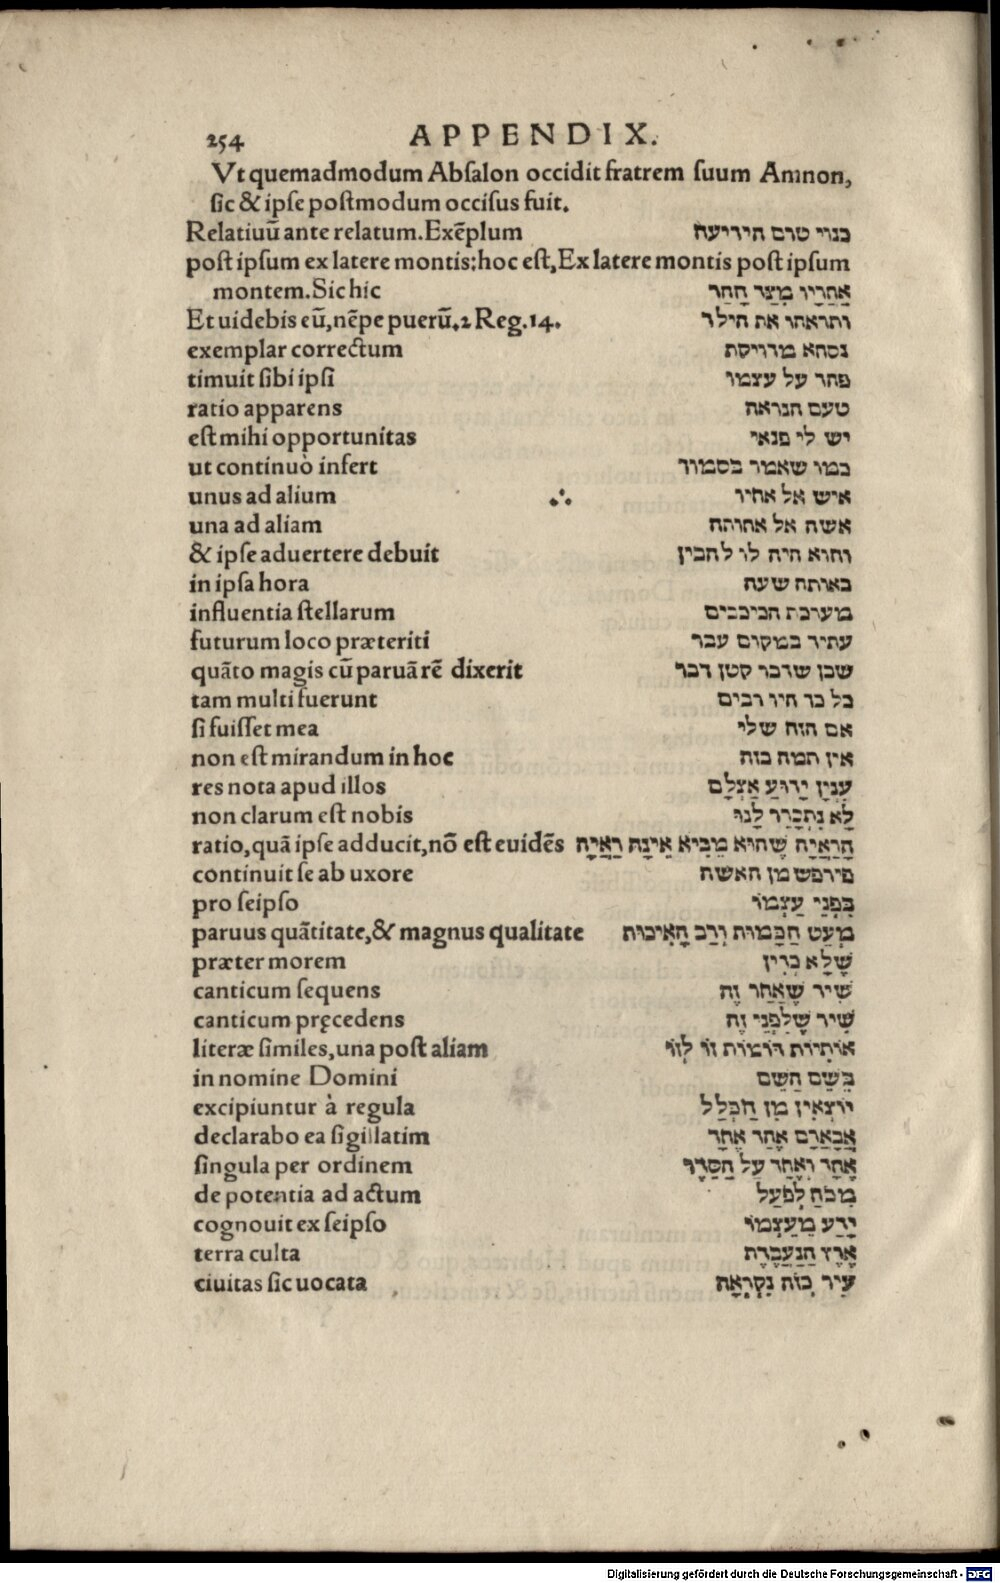 254 APPENDIX.
Vt quemadmodum Absalon occidit fratrem suum Amnon,
sic & ipse postmodum occisus fuit.
Relatiuū ante relatum. Exēplum כנוי טרם הידיעה
post ipsum ex latere montis: hoc est, Ex latere montis post ipsum
montem. Sic hic אַחֲרָיו מִצַד הָהַר
Et uidebis eū, nēpe puerū. 2 Reg. 14. ותראהו את הילד
exemplar correctum נסחא מדויקת
timuit sibi ipsi פחד על עצמו
ratio apparens טעם הנראה
est mihi opportunitas יש לי פנאי
ut continuò infert כמו שאמר בסמוך
unus ad alium איש אל אחיו
una ad aliam אשה אל אחותה
& ipse aduertere debuit והוא היה לו להבין
in ipsa hora באותה שעה
influentia stellarum מערכת הכוכבים
futurum loco præteriti עתיד במקום עבר
quāto magis cū paruā rē dixerit שכן שדבר קטן דבר
tam multi fuerunt כל כך היו רבים
si fuisset mea אם הזה שלי
non est mirandum in hoc אין תמה בזה
res nota apud illos עִנְיָן יָדוּעַ אֶצְלָם
non clarum est nobis לֹא נִתְבָּרֵר לָנוּ
ratio, quā ipse adducit, nō est euidēs הָרַאֲיָה שֶׁהוּא מֵבִיא אֵינָה רַאֲיָה
continuit se ab uxore פירש מן האשה
pro seipso בִּפְנֵי עַצְמוֹ
paruus quātitate, & magnus qualitate מְעַט הַכַּמוּת וְרַב הָאֵיכוּת
præter morem שֶׁלֹּא כְדִין
canticum sequens שִׁיר שֶׁאַחַר זֶה
canticum pręcedens שִׁיר שֶׁלִּפְנֵי זֶה
literæ similes, una post aliam אוֹתִיּוֹת דּוֹמוֹת זוֹ לְזוֹ
in nomine Domini בְּשֵׁם הַשֵּׁם
excipiuntur à regula יוֹצְאִין מִן הַכְּלָל
declarabo ea sigillatim אֲבָאֲרֵם אֶחָד אֶחָד
singula per ordinem אֶחָד וְאֶחָד עַל הַסֵּדֶר
de potentia ad actum מִכֹּחַ לְפֹעַל
cognouit ex seipso יָדַע מֵעַצְמוֹ
terra culta אֶרֶץ הַנֶּעֱבֶדֶת
ciuitas sic uocata עִיר כֹּזֹה נִקְרֵאת
Digitalisierung gefördert durch die Deutsche Forschungsgemeinschaft - DFG